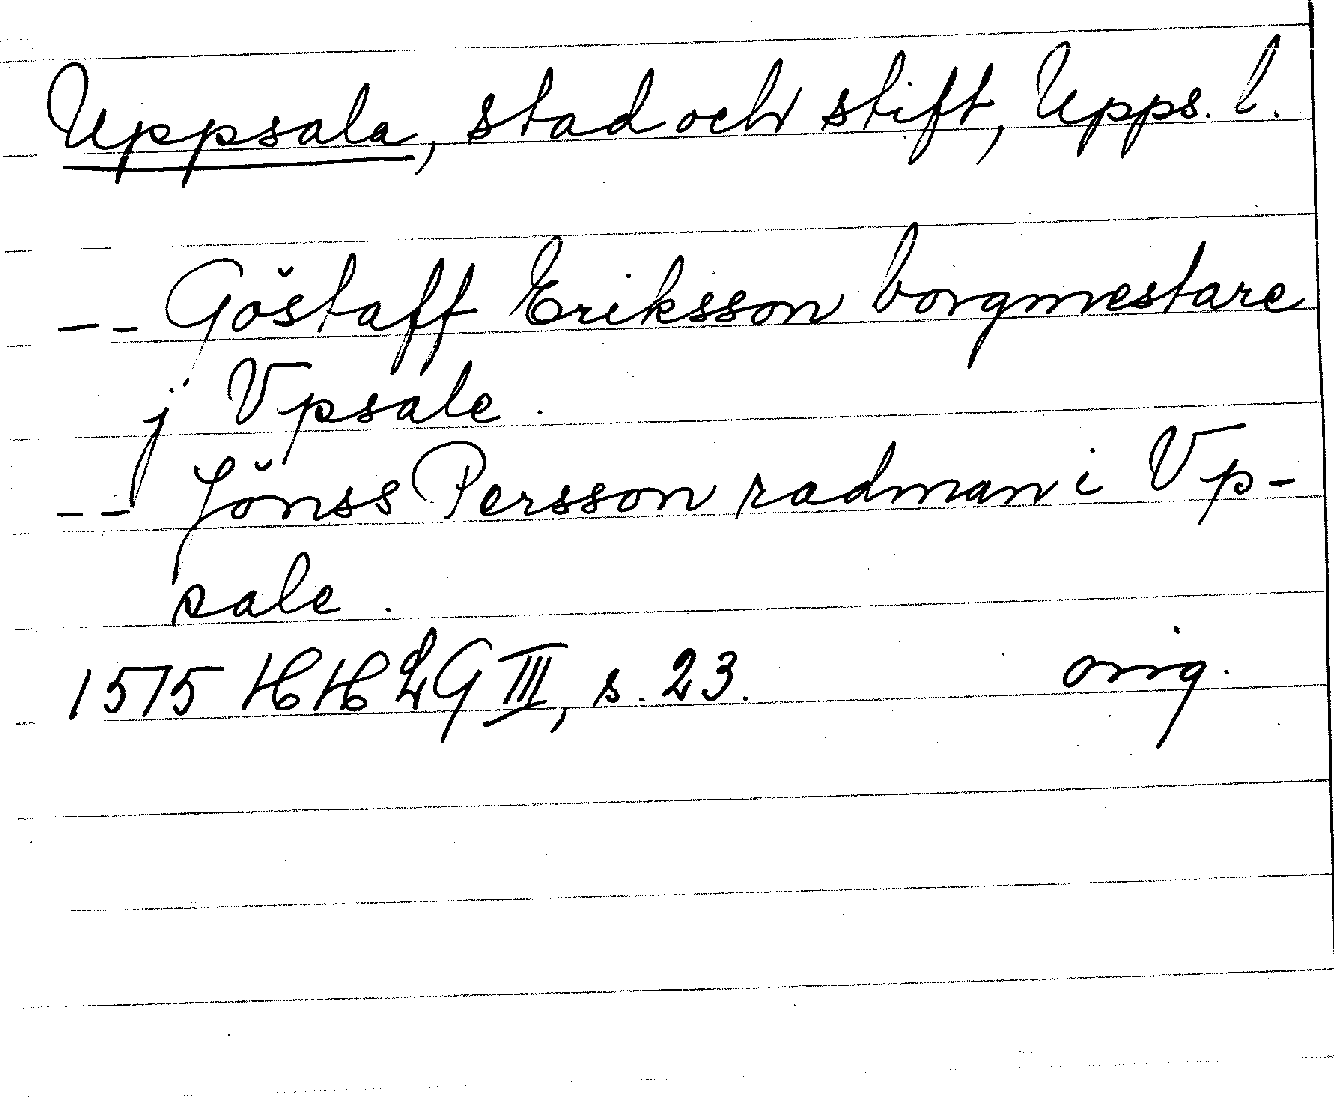 Uppsala, stad och stift, Upps. l.
-- Göstaff Eriksson borgmestare
j Vpsale.
-- Jönss Persson radman i Vp-
sale.
1575 HHLG III, s. 23. orig.